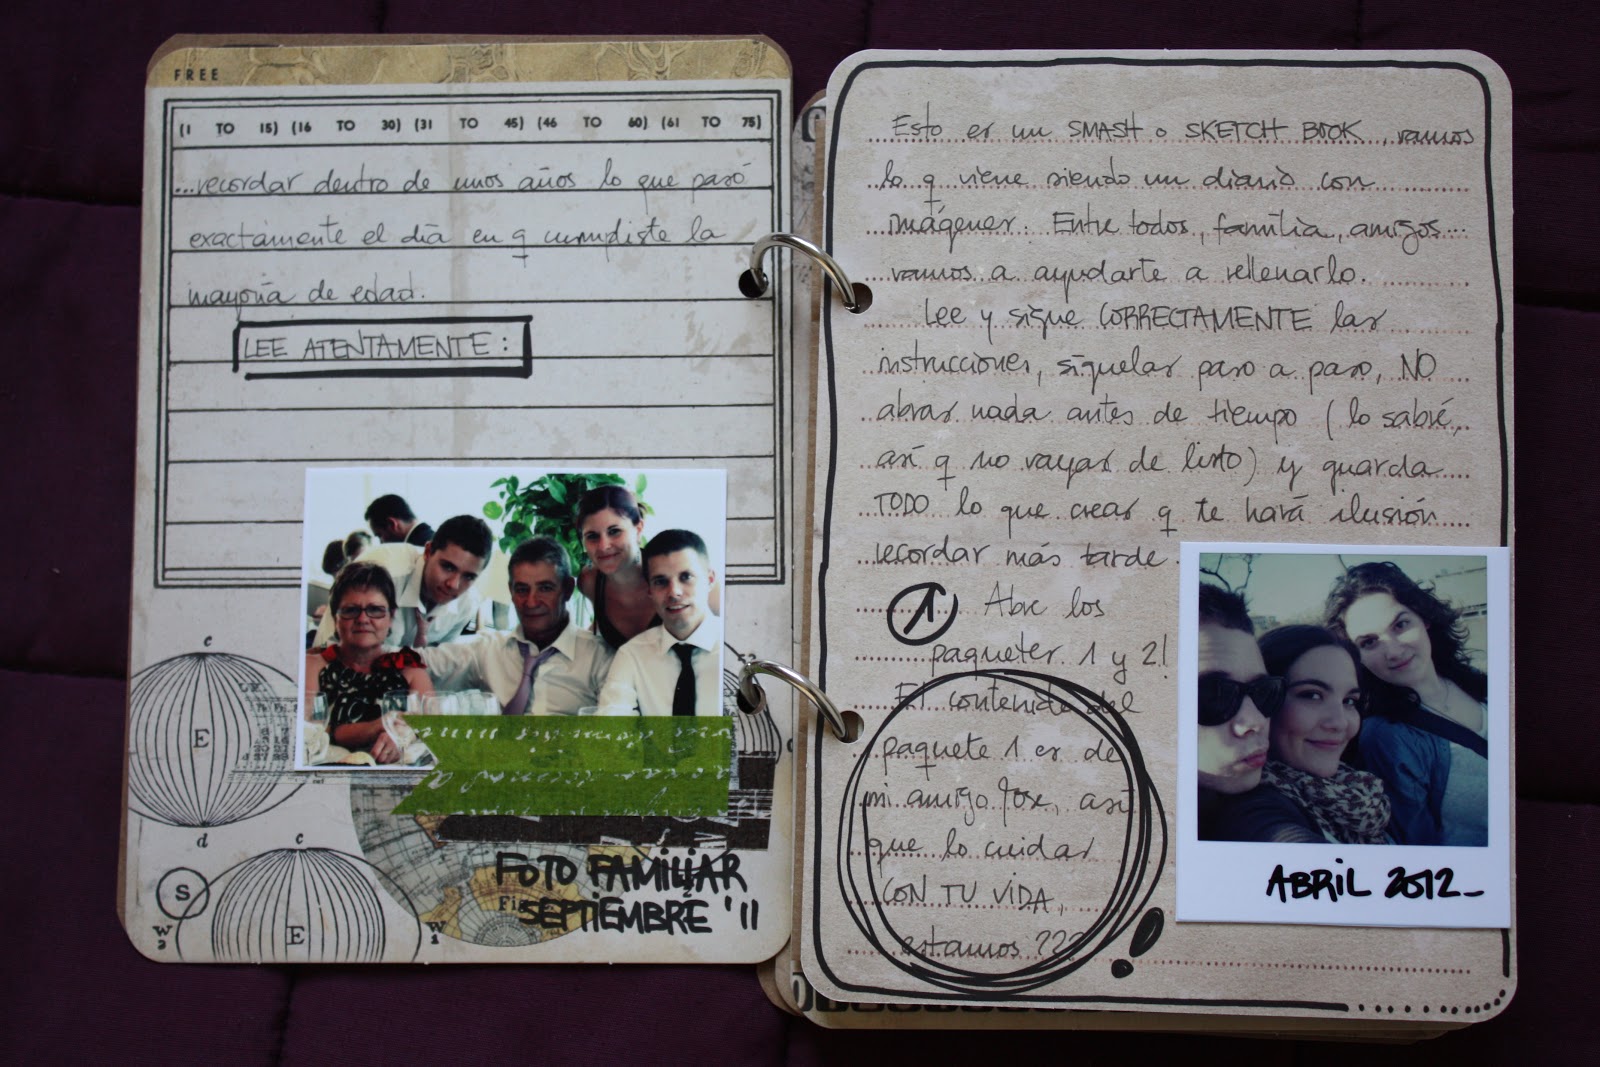 FREE
(1 TO 15) (16 TO 30) (31 TO 45) (46 TO 60) (61 TO 75)
...recordar dentro de unos años lo que pasó
exactamente el día en q cumpliste la
mayoría de edad.
LEE ATENTAMENTE:
c
E
d
c
S
E
W
2
W
1
52
Fig.
FOTO FAMILIAR
SEPTIEMBRE '11
Esto es un SMASH o SKETCH BOOK, vamos
lo q viene siendo un diario con
imágenes. Entre todos, família, amigos...
vamos a ayudarte a rellenarlo.
Lee y sigue CORRECTAMENTE las
instrucciones, síguelas paso a paso, NO
abras nada antes de tiempo (lo sabré,
así q no vayas de listo) y guarda
TODO lo que creas q te hará ilusión
recordar más tarde.
1 Abre los
paquetes 1 y 2!
El contenido del
paquete 1 es de
mi amigo Jose, así
que lo cuidas
CON TU VIDA,
estamos???
!
ABRIL 2012_